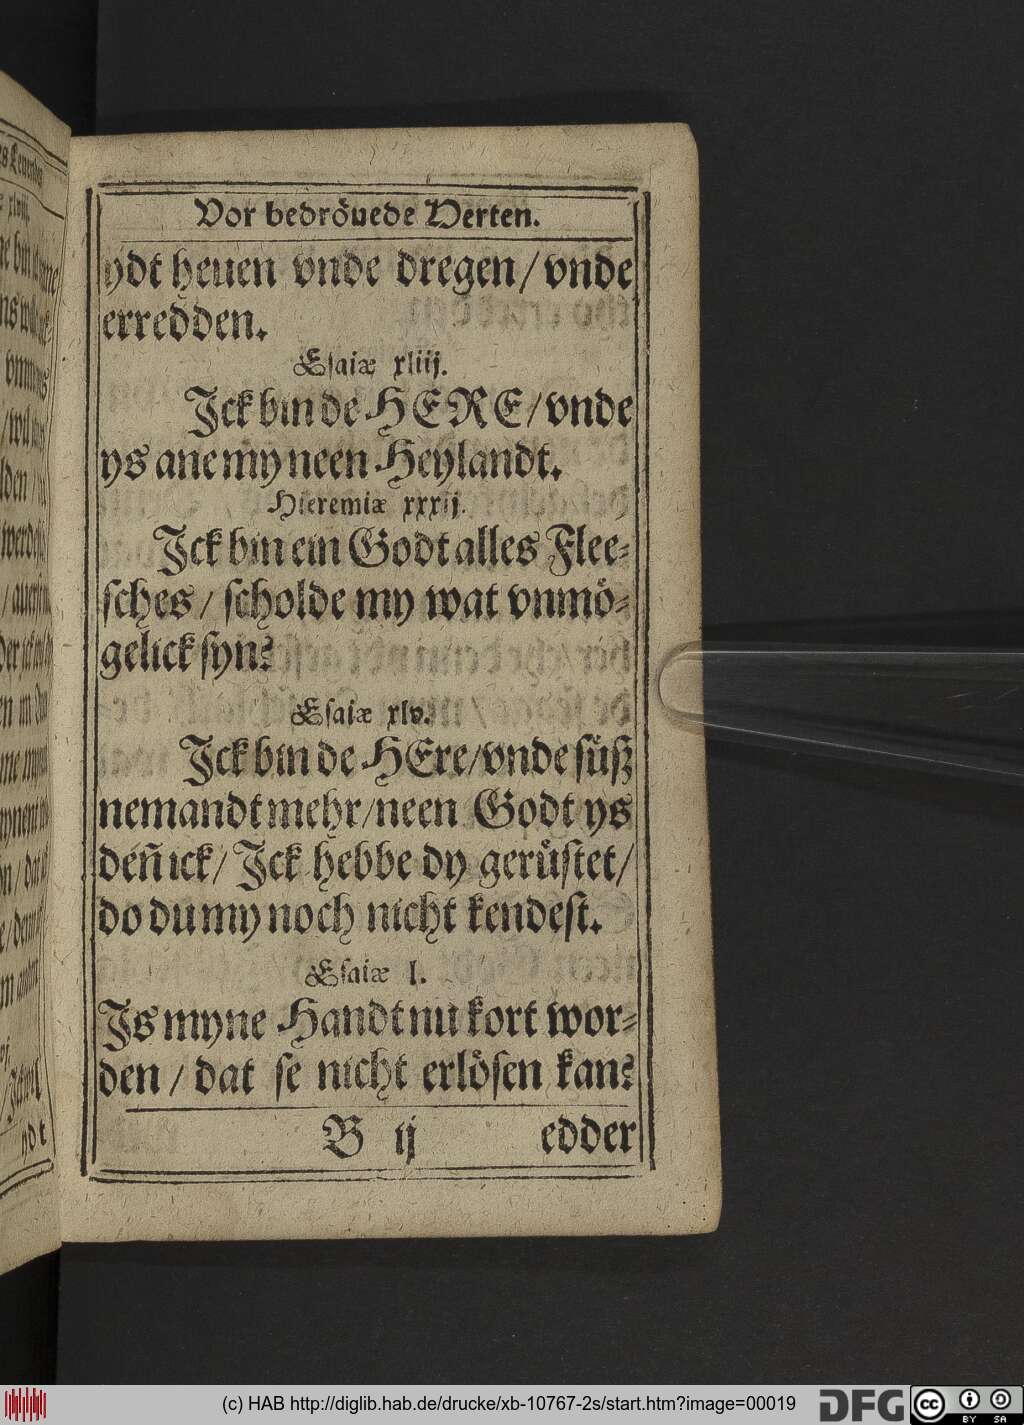 Vor bedröuede Herten.
ydt heuen vnde dregen/ vnde
erredden.
Esaiæ xliij.
Jck bin de HERE/ vnde
ys ane my neen Heylandt.
Hieremiæ xxxij.
Jck bin ein Godt alles Flee-
sches/ scholde my wat vnmö-
gelick syn?
Esaiæ xlv.
Jck bin de HEre/ vnde süß
nemandt mehr/ neen Godt ys
deñ ick/ Jck hebbe dy gerüstet/
do du my noch nicht kendest.
Esaiæ l.
Js myne Handt nu kort wor-
den/ dat se nicht erlösen kan?
B ij edder
(c) HAB http://diglib.hab.de/drucke/xb-10767-2s/start.htm?image=00019
DFG
cc
BY SA